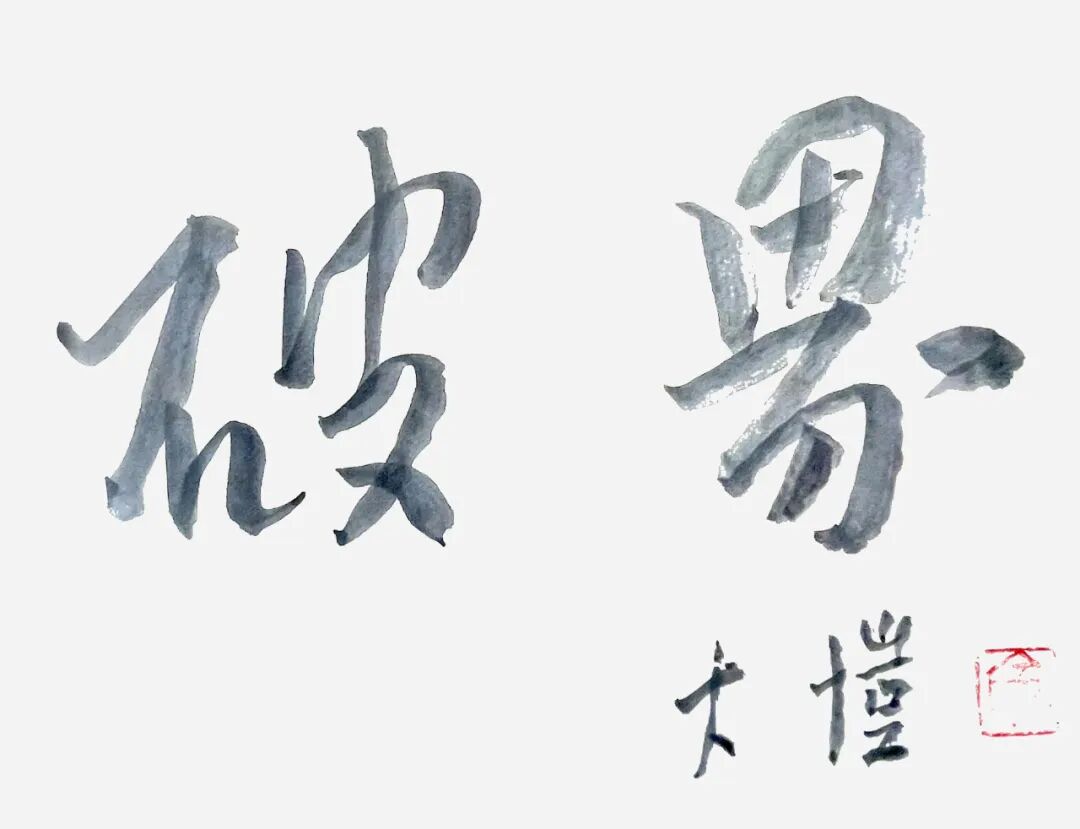 破界
大愷